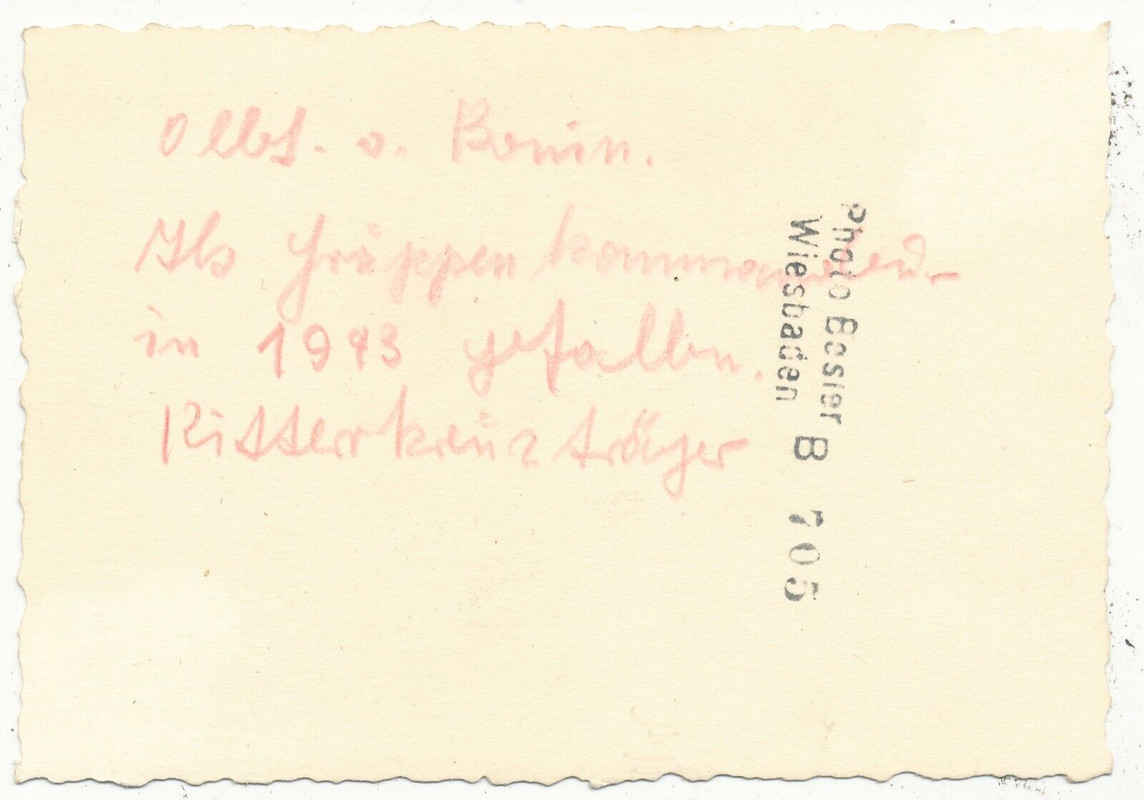 Olbt. v. Bonin.
Als Gruppenkommandeur
in 1943 gefallen.
Ritterkreuzträger
Photo Besier
Wiesbaden
B 705